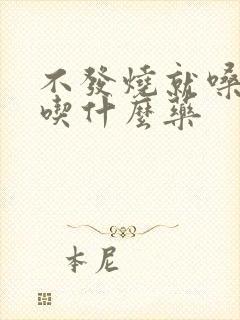 不發燒就嗓
喫什麼藥
本尼